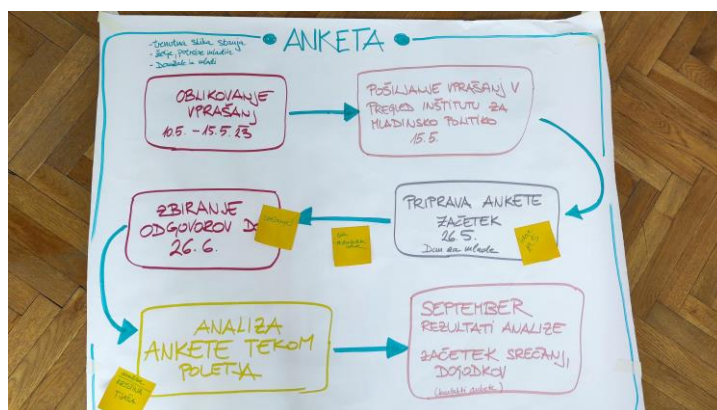 ANKETA
- trenutna slika stanja
- želje, potrebe mladih
- Domžale in mladi
OBLIKOVANJE
VPRAŠANJ
10.5. - 15.5. 23
POŠILJANJE VPRAŠANJ V
PREGLED INŠTITUTU ZA
MLADINSKO POLITIKO
15.5.
PRIPRAVA ANKETE
ZAČETEK
26.5.
Dan za mlade
ZBIRANJE
ODGOVOROV DO
26.6.
ANALIZA
ANKETE TEKOM
POLETJA
SEPTEMBER
REZULTATI ANALIZE
ZAČETEK SREČANJ,
DOGODKOV